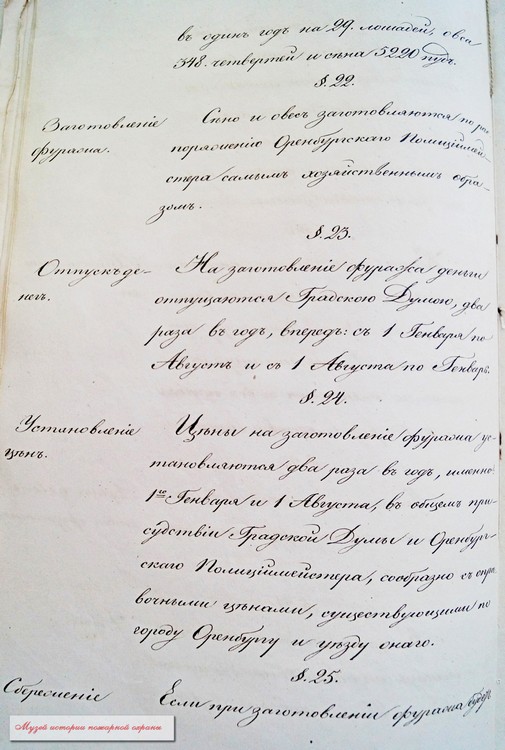 въ одинъ годъ на 29. лошадей, овса
348. четвертей и сѣна 5220 пудъ.
§. 22.
Заготовленіе
фуража.
Сѣно и овесъ заготовляются по рас
поряженію Оренбургскаго Полиціймей-
стера самымъ хозяйственнымъ обра-
зомъ.
§. 23.
Отпускъ де-
негъ.
На заготовленіе фуража деньги
отпущаются Градскою Думою, два
раза въ годъ, впередъ: съ 1 Генваря по
Августъ и съ 1 Августа по Генварь.
§. 24.
Установленіе
цѣнъ.
Цѣны на заготовленіе фуража ус-
тановляются два раза въ годъ, именно
1го Генваря и 1 Августа, въ общемъ при-
судствіи Градской Думы и Оренбург-
скаго Полиціймейстера, сообразно съ спра
вочными цѣнами, существующими по
городу Оренбургу и уѣзду онаго.
§. 25.
Сбереженіе
Если при заготовленіи фуража будутъ
Музей истории пожарной охраны